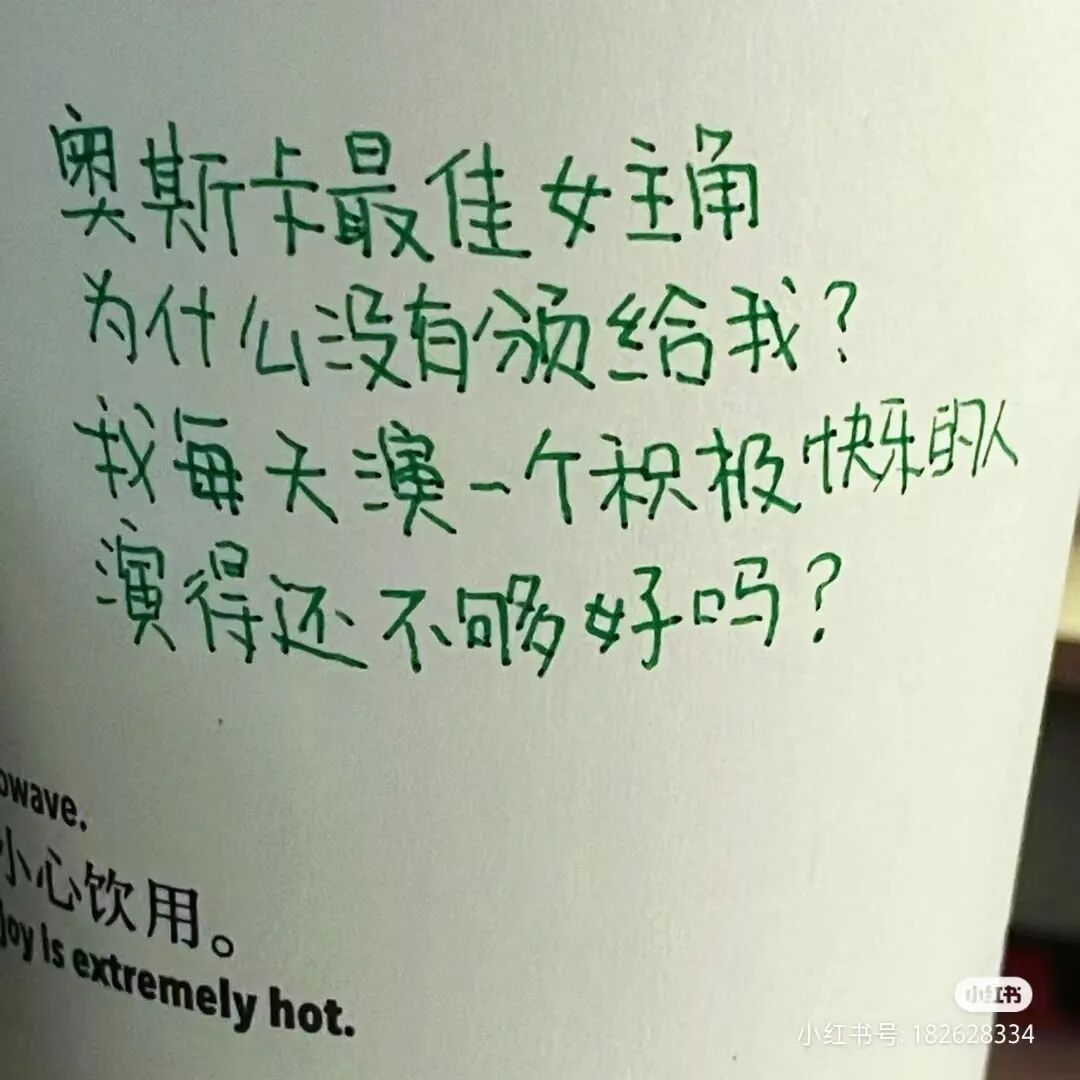 奥斯卡最佳女主角
为什么没有颁给我？
我每天演一个积极快乐的人
演得还不够好吗？
owave.
小心饮用。
joy is extremely hot.
小红书
小红书号: 182628334